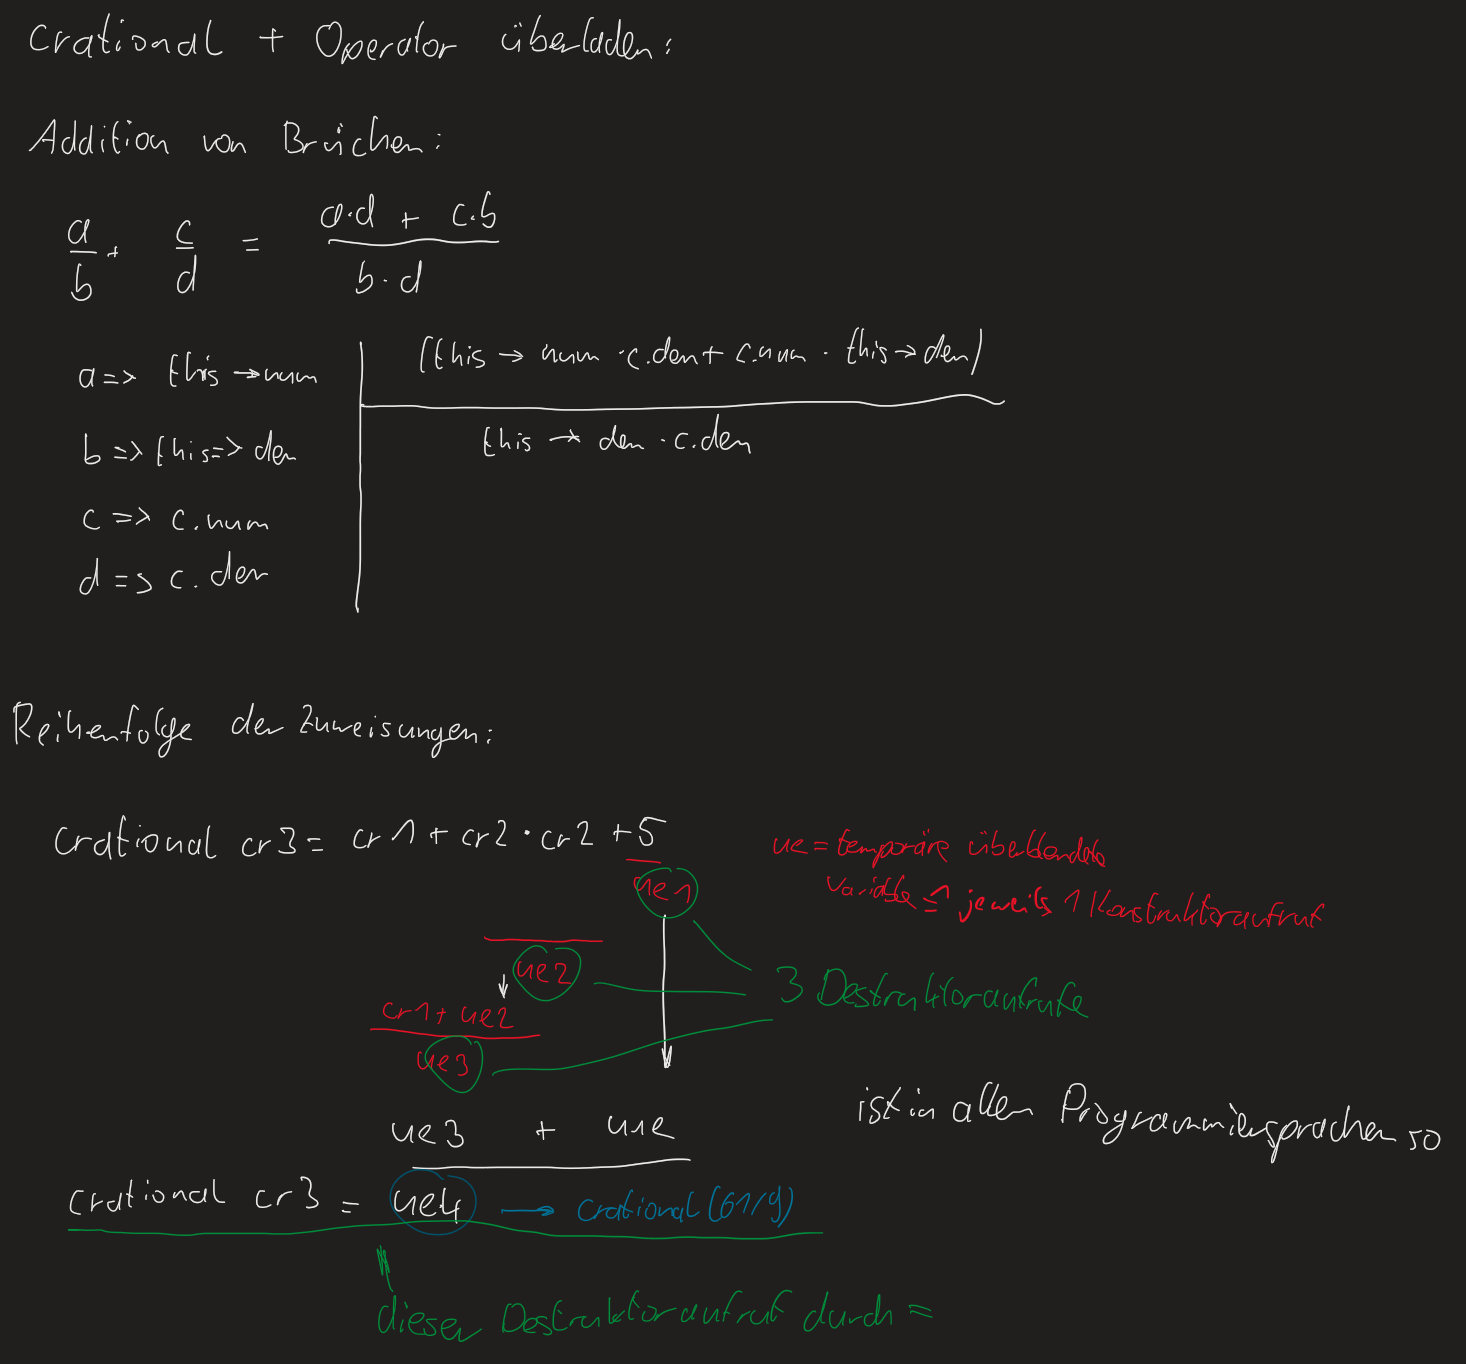 crational + Operator überladen:
Addition von Brüchen:
a/b + c/d = (a·d + c·b)/(b·d)
a => this → num
(this → num · c.den + c.num · this → den)
this → den · c.den
b => this => den
c => c.num
d => c.den
Reihenfolge der Zuweisungen:
crational cr3 = cr1 + cr2 · cr2 + 5
ue = temporäre
Variable ≙ jeweils 1 Konstruktoraufruf
ue1
ue2
3 Destruktoraufrufe
cr1 + ue2
ue3
ist in allen Programmiersprachen so
ue3 + u1e
crational cr3 = ue4 → crational (61/9)
dieser Destruktoraufruf durch =